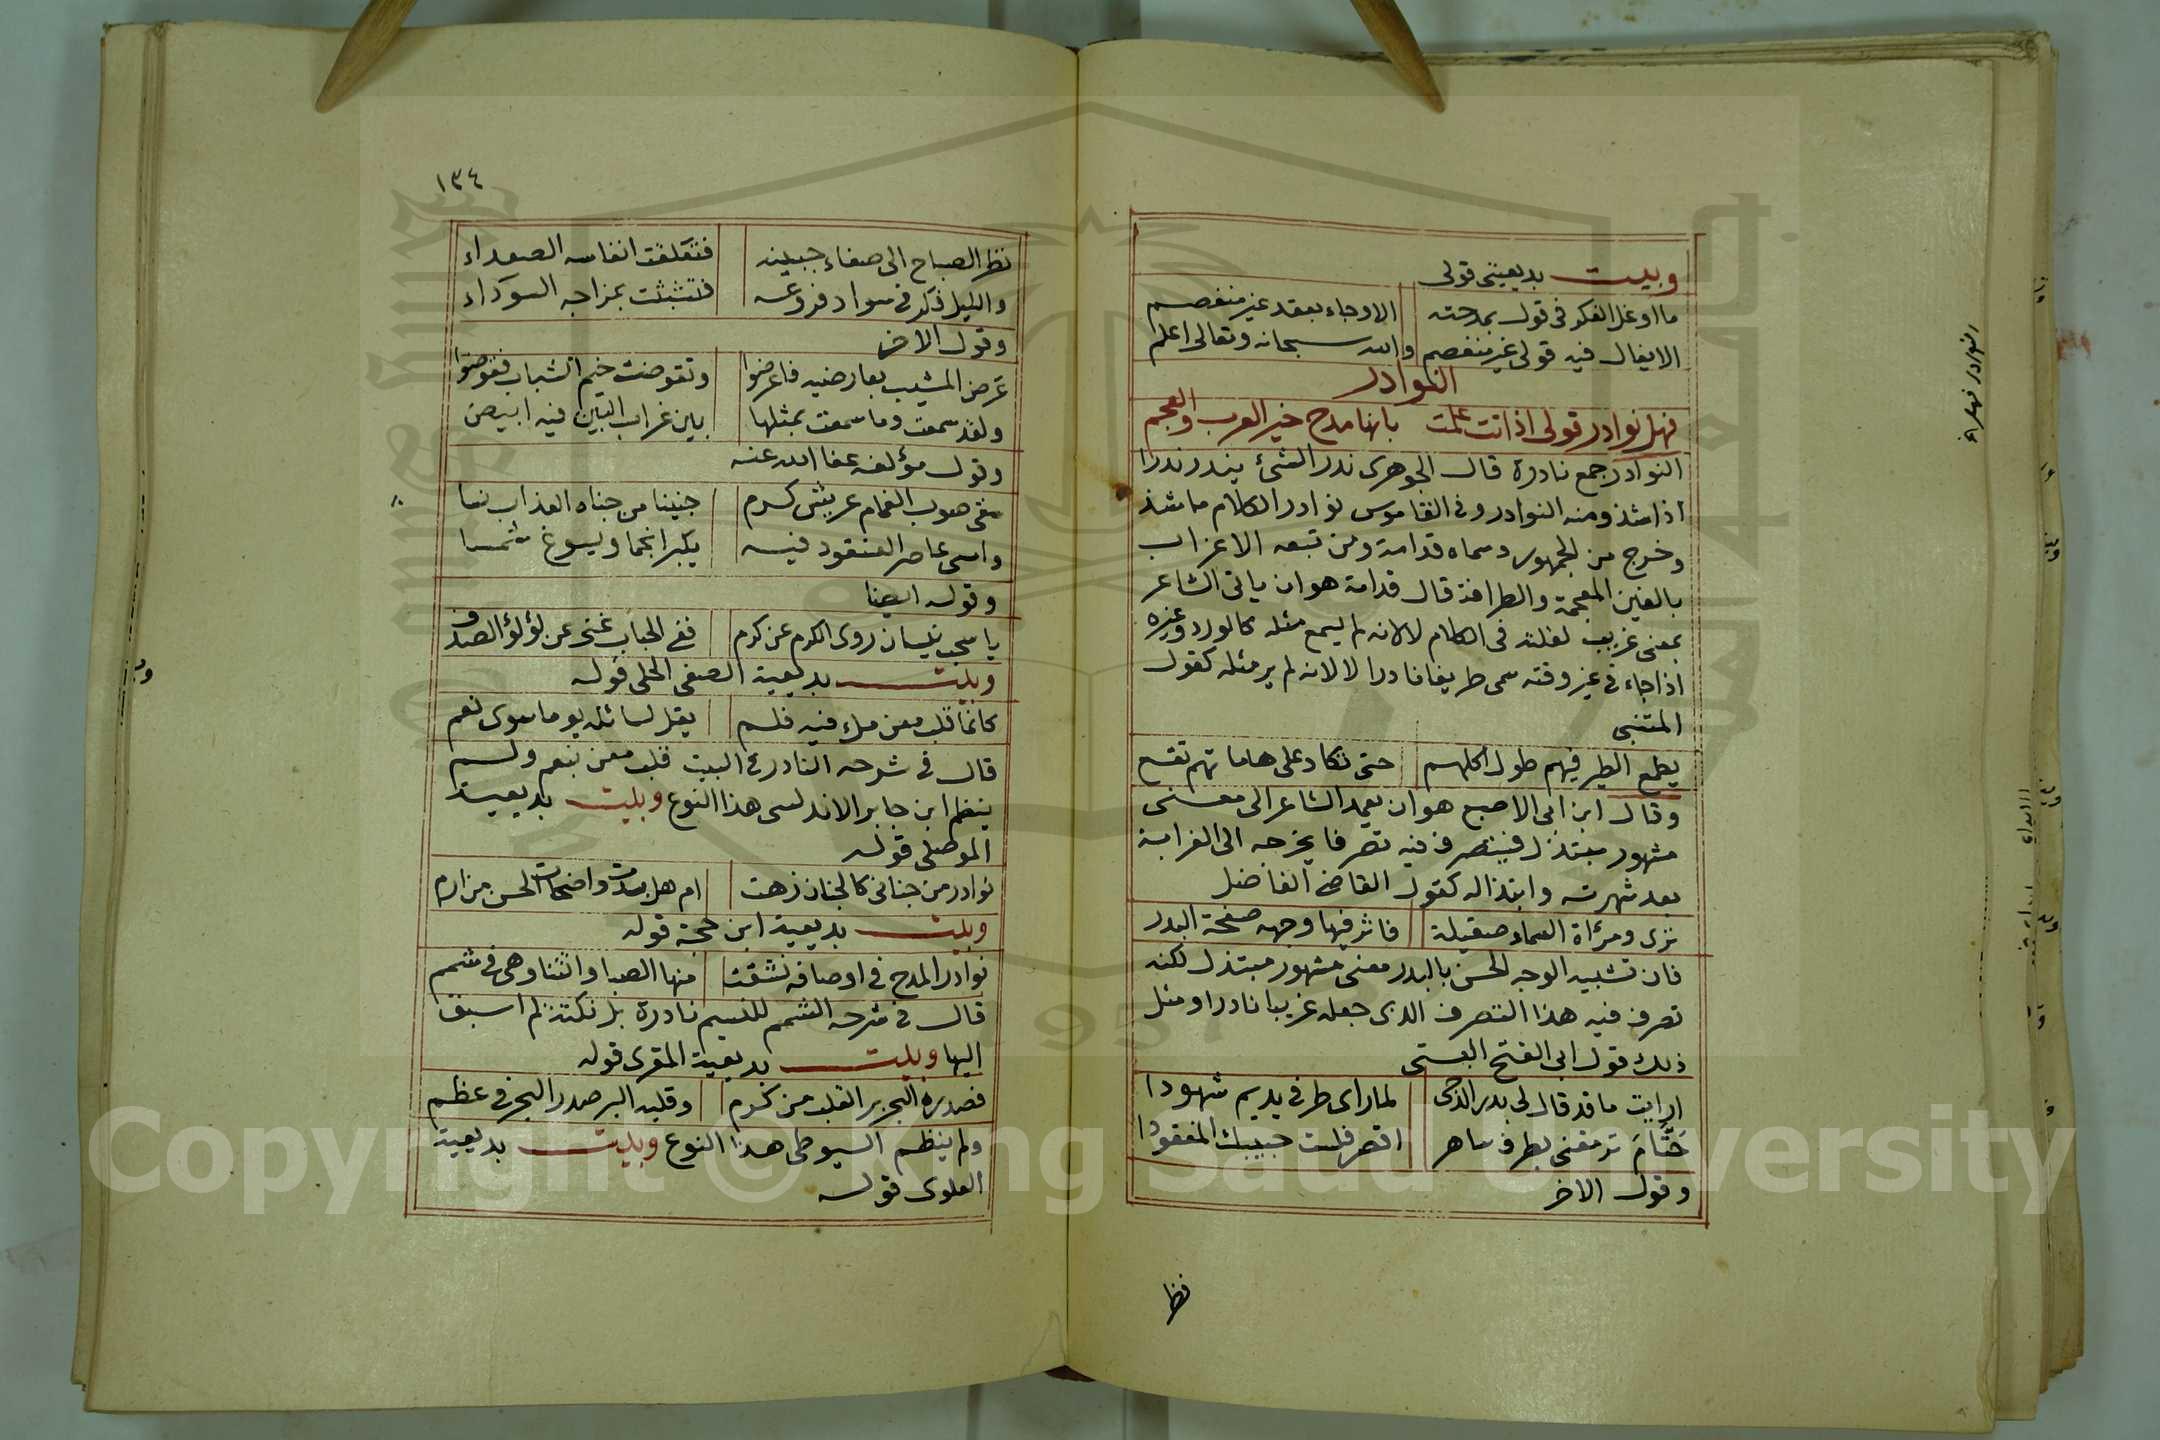 وبيت بديعيتي قولي
ما اوغل الفكر في قول بمدحته الا وجاء بعقد غير منفصم
الايغال فيه قولي غير منفصم والله سبحانه وتعالى اعلم
النوادر
فهل نوادر قولي اذ انت علمت بانها مدح خير العرب والعجم
النوادر جمع نادرة قال الجوهري ندر الشئ يندر ندرا
اذا شذ ومنه النوادر وفي القاموس نوادر الكلام ما شذ
وخرج من الجمهور وسماه قدامة ومن تبعه الاغراب
بالغين المعجمة والطرافة قال قدامة هو ان ياتي الشاعر
بمعنى غريب لقلته في الكلام لا لانه لم يسمع مثله كالورد وغيره
اذا جاء في غير وقته سمى طريفا نادرا لا لانه لم ير مثله كقول
المتنبي
يطمع الطير فيهم طول اكلهم حتى تكاد على هاماتهم تقع
وقال ابن ابي الاصبع هو ان يعمد الشاعر الى معنى
مشهور مبتذل فيتصرف فيه تصرفا يخرجه الى الغرابة
بعد شهرته وابتذاله كقول القاضي الفاضل
ترى ومرآة السماء صقيلة فاثر فيها وجهه صفحة البدر
فان تشبيه الوجه الحسن بالبدر معنى مشهور مبتذل لكنه
تصرف فيه هذا التصرف الذي جعله غريبا نادرا ومثل
ذلك قول ابي الفتح البستي
ارايت ما قد قال لي بدر الدجى لما راى طرفي يديم شهودا
حَتَّامَ ترمقني بطرف ساهر اقصر فلست حبيبك المفقودا
وقول الاخر
نظر
النوادر
١٣٤
نظر الصباح الى صفاء جبينه فتعلقت انفاسه الصعداء
والليل فكر في سواد فروعه فتشبثت بمزاجه السوداء
وقول الاخر
عرض المشيب بعارضيه فاعرضوا وتقوضت خيم الشباب فقوضوا
ولقد سمعت وما سمعت بمثلها بين غراب البين فيه ابيض
وقول مؤلفه عفا الله عنه
سقى صوب الغمام عريش كرم جنينا من جناه العذاب
وامسى عاصر العنقود فيه يكبر انجما ويسوغ شمسا
وقوله ايضا
يا سحب نيسان روى الكرم عن كرم ففي الحباب غنى عن لؤلؤ الصدف
وبيت بديعية الصفي الحلي قوله
كانما قلب معن ملء فيه فلم يقل لسائله يوما سوى نعم
قال في شرحه النادر في البيت قلب معن بنعم ولم
ينظم ابن جابر الاندلسي هذا النوع وبيت بديعية
الموصلي قوله
نوادر من جناني كالجنان زهت ام هل بدت واضحات الحسن من ارم
وبيت بديعية ابن حجة قوله
نوادر المدح في اوصافه نشقت منها الصبا واتتنا وهي في شمم
قال في شرحه الشمم للنسيم نادرة بل نكتة لم اسبق
اليها وبيت بديعية المقري قوله
فصدره البحر بر القلب من كرم وقلبه البر صدر البحر في عظم
ولم ينظم السيوطي هذا النوع وبيت بديعية
العلوي قوله
Copyright © King Saud University
957